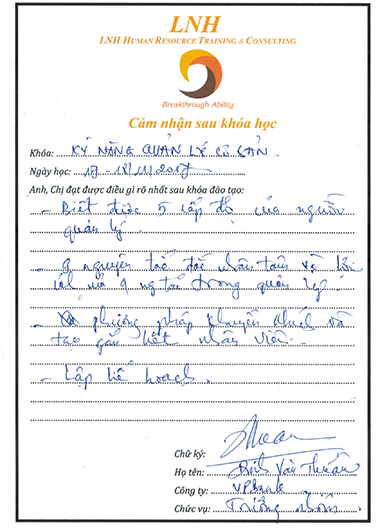 LNH
LNH HUMAN RESOURCE TRAINING & CONSULTING
Breakthrough Ability
Cảm nhận sau khóa học
Khóa: KỸ NĂNG QUẢN LÝ CƠ BẢN
Ngày học: 17 - 18/11/2017
Anh, Chị đạt được điều gì rõ nhất sau khóa đào tạo:
- Biết được 5 cấp độ của người
quản lý.
- 9 nguyên tắc đắc nhân tâm và
9 ng tắc trong quản lý.
- phương pháp khuyến khích và
tạo gắn kết nhân viên.
- Lập kế hoạch.
Chữ ký:
Họ tên: Đinh Văn Thuấn
Công ty: VPBank
Chức vụ: Trưởng nhóm